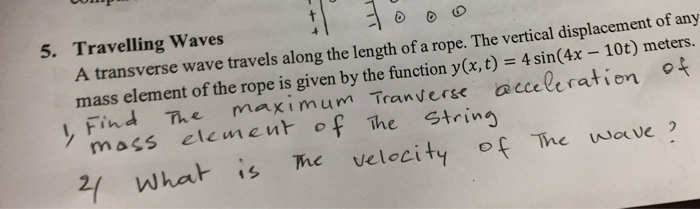 5. Travelling Waves
A transverse wave travels along the length of a rope. The vertical displacement of any
mass element of the rope is given by the function y(x, t) = 4 sin(4x − 10t) meters.
1) Find The maximum Tranverse acceleration of
mass element of The String
2) What is The velocity of The wave?